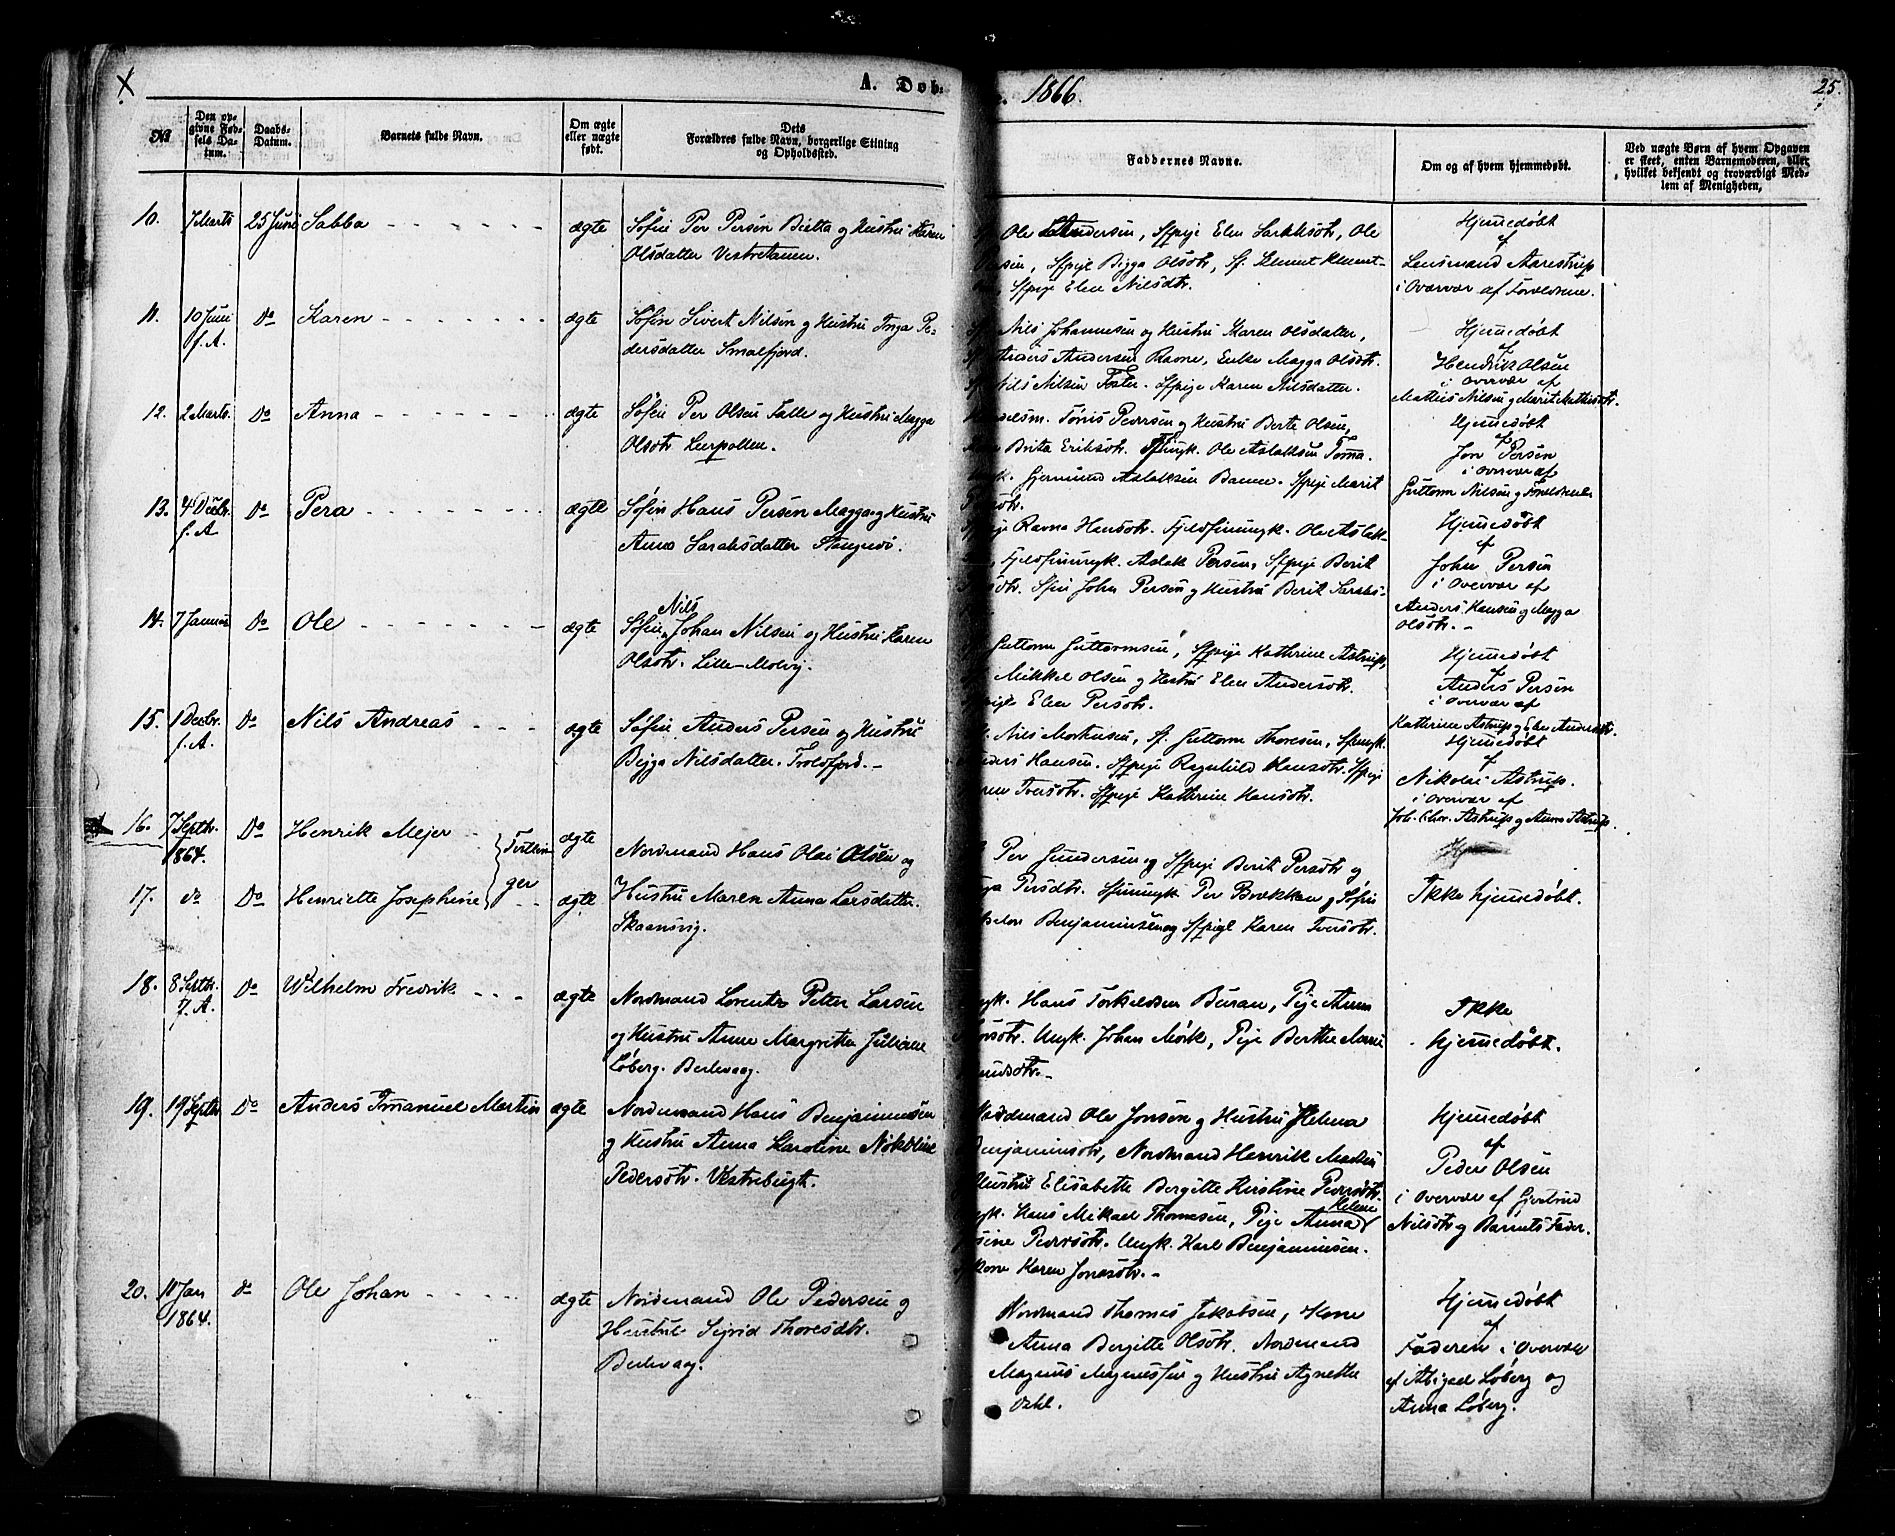 A. Døb.
1866.
25.
No
Den op-
givne Fød-
sels Da-
tum.
Daabs-
Datum.
Barnets fulde Navn.
Om ægte
eller uægte
født.
Dets
Forældres fulde Navn, borgerlige Stilling
og Opholdssted.
Faddernes Navne.
Om og af hvem hjemmedøbt.
Ved uægte Børn af hvem Opgaven
er skeet, enten Barnemoderen, eller
hvilket bekjendt og troværdigt Med-
lem af Menigheden,
10.
7 Marts
25 Juni
Sabba
ægte
Søfin Per Persen Bietta og Hustru Karen
Olsdatter Vestretanen.
Ole Andersen, Sfpige Elen Larkksdtr, Ole
Sfpige Bigga Olsdtr, Sf. Klemet Klemet-
Sfpige Elen Nilsdtr.
Hjemedøbt
af
Lensmand Aarestrup
i Overvær af Forældrene.
11.
10 Juni
f. A.
Do
Karen
ægte
Søfin Sivert Nilsen og Hustru Inga Pe-
dersdatter Smalfjord.
Nils Johannesen og Hustru Karen Olsdatter,
Anders Andersen Ravne, Enke Magga Olsdtr.
Nils Nilsen Foster. Sfpige Karen Nilsdatter.
Hjemedøbt
af
Hendrik Olsen
i overvær af
Mathis Nilsen og Marit Mathisdtr.
12.
2 Marts.
Do
Anna
ægte
Søfin Per Olsen Falle og Hustru Magga
Olsdtr Leerpollen.
Tønis Pedersen og Hustru Berte Olsen,
Brita Eriksdtr. Ole Aslaksen Tomma.
Gjermund Aslaksen Banne. Sfpige Marit
Hjemedøbt
af
Jon Persen
i overvær af
Guttorm Nilsen og Forældrene
13.
4 Decbr.
f. A
Do
Pera
ægte
Søfin Hans Persen Magga og Hustru
Anna Larsksdatter Stangnæs.
Ravna Hansdtr. Fjeldfinungk. Ole Aslak-
Fjeldfinungk. Aslak Persen, Sfpige Berit
Sfin John Persen og Hustru Berit Larsks-
Hjemedøbt
af
John Persen
i Overvær af
Anders Hansen og Magga
Olsdtr.
14.
7 Januar
Do
Ole
ægte
Nils
Søfin Johan Nilsen og Hustru Karen
Olsdtr. Lille-Molvig.
Guttorm Guttormsen, Sfpige Kathrine Astrup,
Mikkel Olsen og Hustru Elen Andersdtr.
Elen Persdtr.
Hjemedøbt
af
Anders Persen
i overvær af
Kathrine Astrup og Elen Andersdtr.
15.
1 Decbr.
f. A.
Do
Nils Andreas
ægte
Søfin Anders Persen og Hustru
Bigga Nilsdatter. Troldfjord.
Nils Morthensen, Sf. Guttorm Thoresen, Sfungk.
Anders Hansen. Sfpige Ragnhild Hansdtr. Sfpige
Iversdtr. Sfpige Kathrine Hansdtr.
Hjemedøbt
af
Nikolai Astrup.
i overvær af
Joh. Chr. Astrup og Anna Astrup.
16.
7 Septbr.
1864.
Do
Henrik Mejer
Tvillin-
ger
ægte
Nordmand Hans Olai Olsen og
Per Gundersen og Sfpige Berit Persdtr og
17.
do
Do
Henriette Josephine
ægte
Hustru Maren Anna Larsdatter.
Skaansvig.
Persdtr. Sfinungk Per Brækkan og Søfin
Benjaminsen og Sfpige Karen Iversdtr.
Ikke hjemedøbt.
18.
8 Septbr.
f. A.
Do
Wilhelm Fredrik
ægte
Nordmand Lorentz Peter Larsen
og Hustru Anna Margrethe Juliane
Løberg. Berlevaag.
Hans Torkeldsen Buran, Pige Anna
Ungk. Johan Mørk, Pige Berthe Marie
Ikke
hjemedøbt.
19.
19 Septbr
Do
Anders Imanuel Martin
ægte
Nordmand Hans Benjaminsen
og Hustru Anna Karoline Nikoline
Pedersdtr. Vestrebugt.
Nordmand Ole Jonsen og Hustru Helena
Benjaminsdtr, Nordmand Henrik Madsen
Hustru Elisabeth Bergitte Kirstine Pedersdtr.
Hans Mikael Thomesen, Pige Anna Helene
Pedersdtr. Ungk. Karl Benjaminsen.
Kone Karen Jonasdtr.
Hjemedøbt
af
Peder Olsen
i Overvær af Gjertrud
Nilsdtr og Barnets Fader.
20.
10 Jan
1864.
do
Ole Johan
ægte
Nordmand Ole Pedersen og
Hustru Sigrid Thoresdtr.
Berlevaag.
Nordmand Thomas Jakobsen, Kone
Anna Bergitte Olsdtr. Nordmand
Magnus Magnussen og Hustru Agnette
Dahl.
Hjemedøbt
af
Faderen i Overvær
af Abigael Løberg og
Anna Løberg.